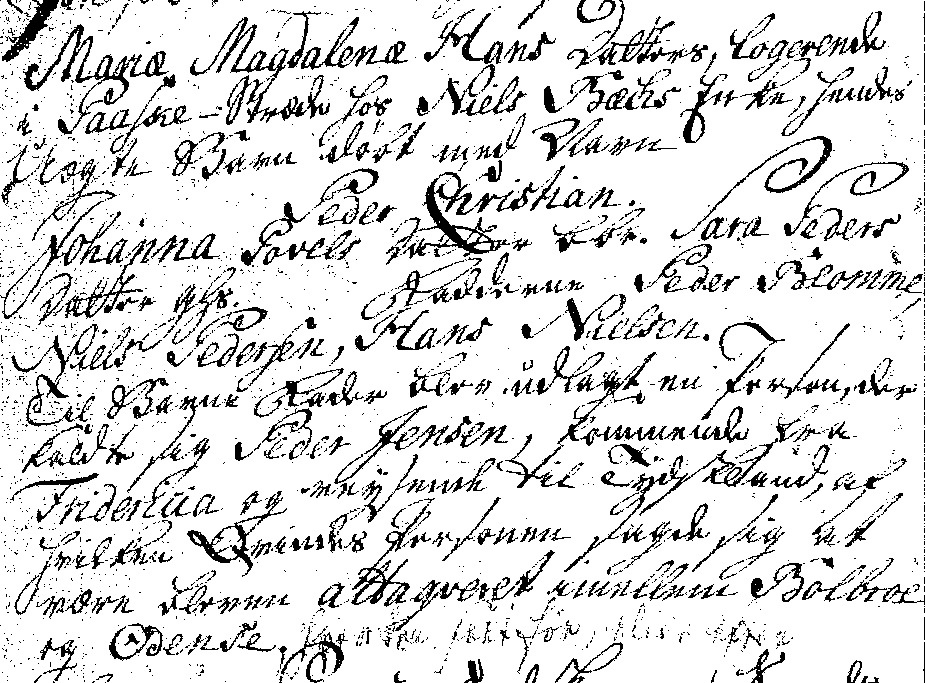 Mariæ Magdalenæ Hans Datters, logerende
i Paaske-Stræde hos Niels Bechs Enke, hendes
Uægte Barn døbt med Navn
Peder Christian.
Johanna Povels Datter bar. Sara Peders
Datter ghs. Fadderne Peder Blomme,
Niels Pedersen, Hans Nielsen.
Til Barne Fader blev udlagt en Person, der
kaldte sig Peder Jensen, kommende fra
Fridericia og reysende til Tydskland, af
hvilken Qvindes Personen sagde sig at
være bleven attaqveret imellem Bolbroe
og Odense,